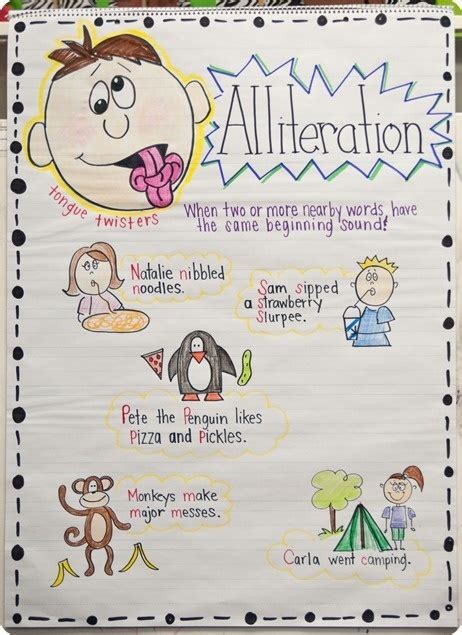 Alliteration
tongue twisters
When two or more nearby words, have
the same beginning sound!
Natalie nibbled
noodles.
Sam sipped
a strawberry
Slurpee.
Pete the Penguin likes
pizza and pickles.
Monkeys make
major messes.
Carla went camping.